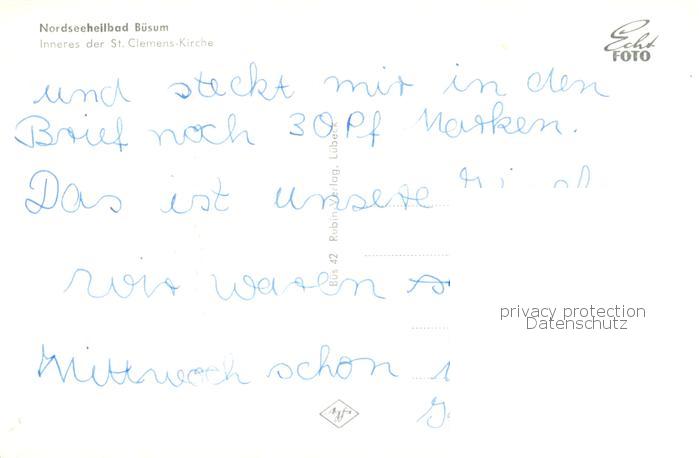 Nordseeheilbad Büsum
Inneres der St. Clemens-Kirche
Echt
FOTO
und steckt mir in den
Brief noch 30Pf Marken.
Das ist unsere
wir waren
Mittwoch schon
Büs 42 Rubin-Verlag, Lübeck
privacy protection
Datenschutz